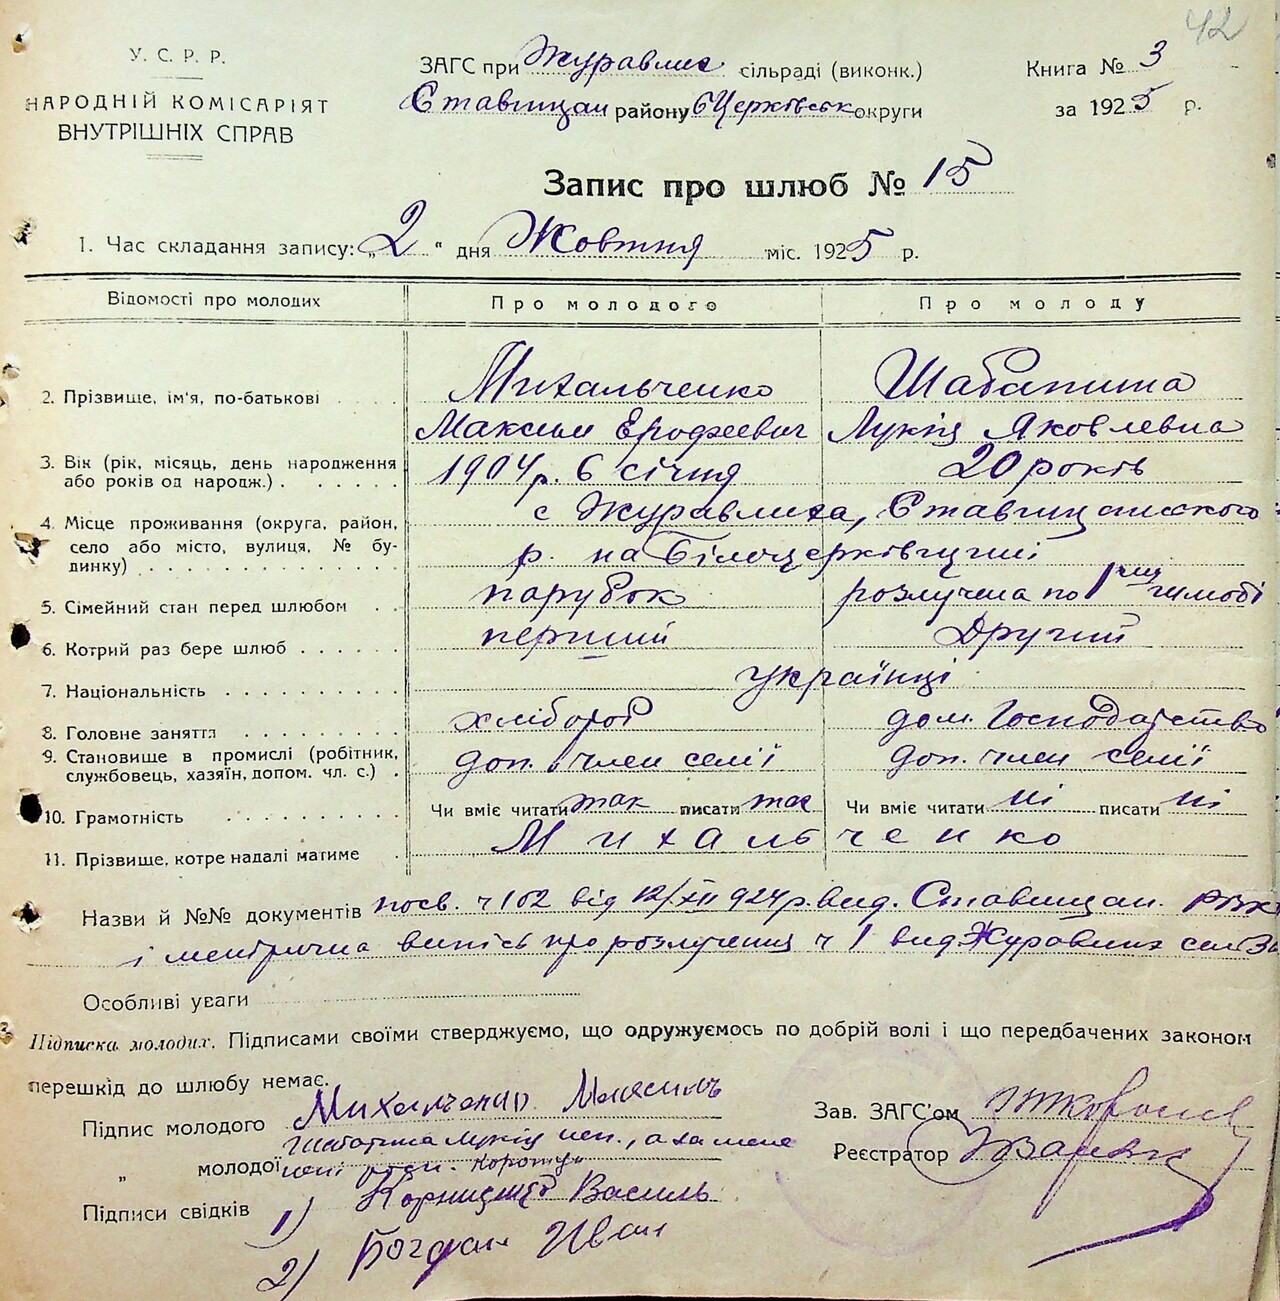 42
У. С. Р. Р.
НАРОДНІЙ КОМІСАРІЯТ
ВНУТРІШНІХ СПРАВ
ЗАГС при Журавлих сільраді (виконк.)
Ставищан району бЦерківськ округи
Книга № 3
за 1925 р.
Запис про шлюб № 15
1. Час складання запису: „2“ дня Жовтня міс. 1925 р.
Відомості про молодих Про молодого Про молоду
2. Прізвище, ім'я, по-батькові Михальченко Максим Ерофеевич
Шабатина Лукія Яковлевна
3. Вік (рік, місяць, день народження або років од народж.) 1904 р. 6 січня 20 років
4. Місце проживання (округа, район, село або місто, вулиця, № будинку) с Журавлиха, Ставищанського
р. на Білоцерківщині
5. Сімейний стан перед шлюбом парубок розлучена по 1
6. Котрий раз бере шлюб перший Другий
7. Національність українці
8. Головне заняття хлібороб дом. Господарство
9. Становище в промислі (робітник, службовець, хазяїн, допом. чл. с.) доп. член семії доп. член семії
10. Грамотність Чи вміє читати так писати так Чи вміє читати ні писати ні
11. Прізвище, котре надалі матиме Михальченко
Назви й №№ документів посв. ч 102 від 12/XII 924 р. вид. Ставищан. РВК
і метрична випись про розлучения ч 1 вид. Журавлих
Особливі уваги
Підписка молодих. Підписами своїми стверджуємо, що одружуємось по добрій волі і що передбачених законом
перешкід до шлюбу немає.
Підпис молодого Михальченко Максимъ
„ молодої Шабатина Лукія неп., а за мене
Підписи свідків 1) Василь
2) Богдан Иван
Зав. ЗАГС'ом
Реєстратор